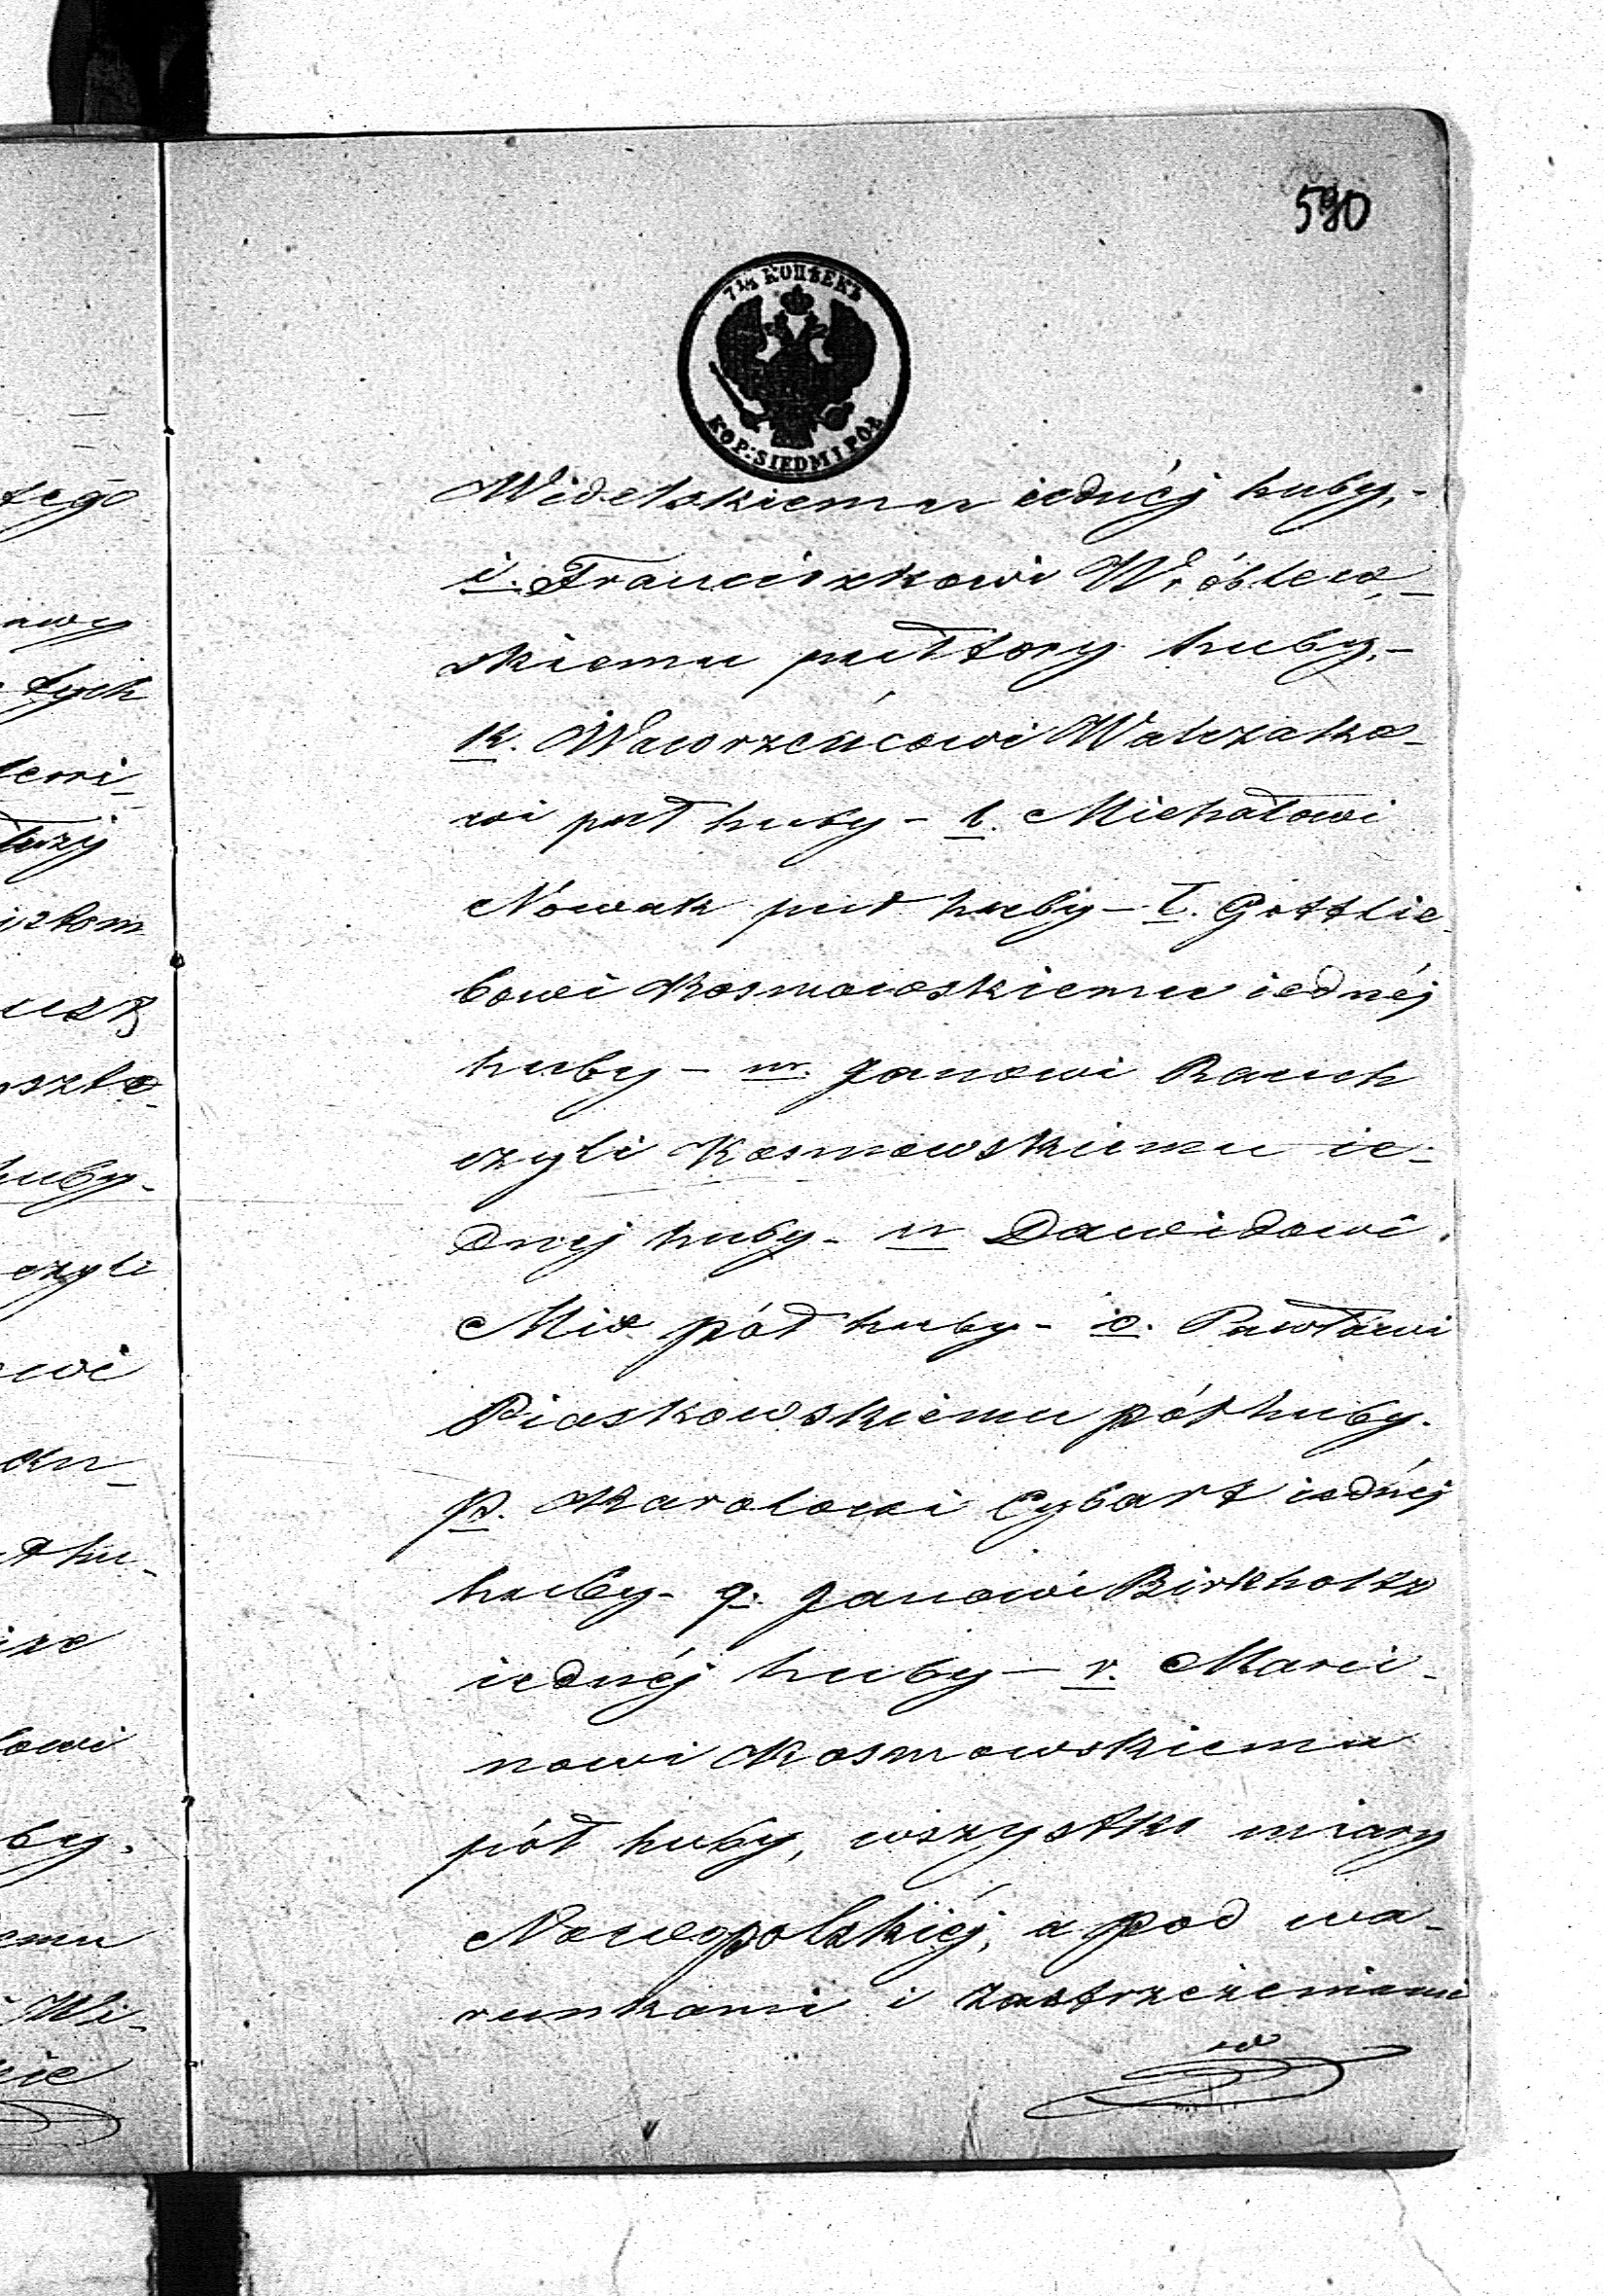 590
7½ КОПѢЕКЪ
KOP: SIEDM I PÓŁ
tego
Widelskiemu iednéj huby,-
i. Franciszkowi Wróblew_
nwy
skiemu pułtory huby,-
tych
k. Wawrzeńcowi Walczako_
wi puł huby - l. Michałowi
Nowak puł huby - ł. Gottlie_
bowi Kosmowskiemu iednéj
huby - m. Janowi Rauch
czyli Kosmowskiemu ie_
huby-
dnej huby - n Dawidowi
czyli
Mix pół huby - o. Pawłowi
wi
Piaskowskiemu pół huby.
p. Karolowi Cybart iednéj
huby - q. Janowi Birkholtz
iednéj huby - r. Marci_
nowi Kosmowskiemu
pół huby, wszystko miary
by.
Nowopolskiéj, a pod wa_
emu
runkami i zastrzeżeniami
Wi_